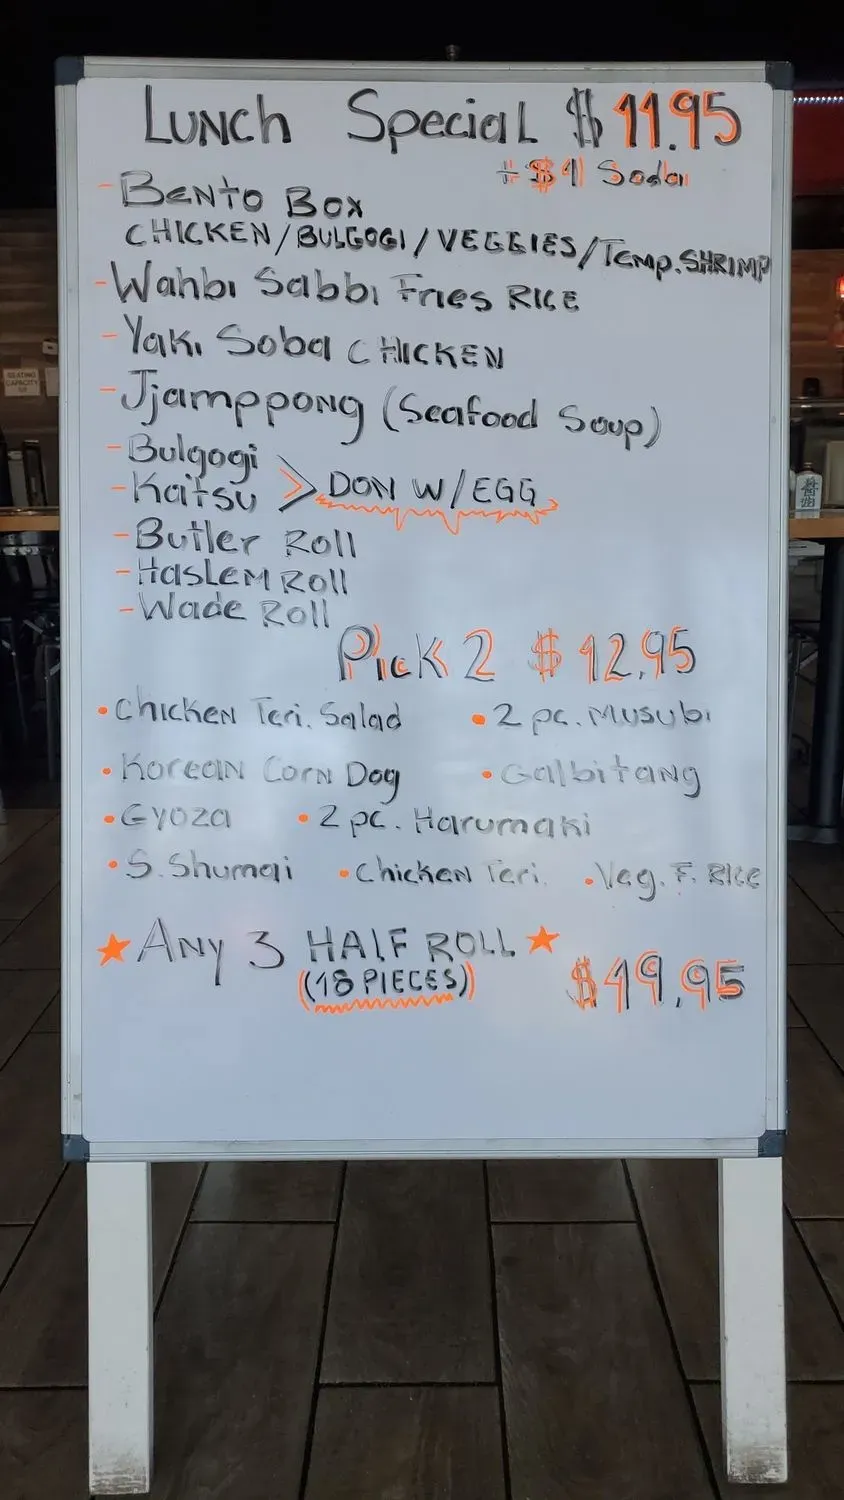 Lunch Special $11.95
+$1 Soda
- Bento Box
CHICKEN/BULGOGI/VEGGIES/Temp.SHRIMP
- Wahbi Sabbi Fries RICE
- Yaki Soba CHICKEN
- Jjamppong (Seafood Soup)
- Bulgogi
- Kaitsu > DON W/EGG
- Butler Roll
- Haslem Roll
- Wade Roll
Pick 2 $12.95
• Chicken Teri. Salad • 2 pc. Musubi
• Korean Corn Dog • Galbitang
• Gyoza • 2 pc. Harumaki
• S. Shumai • Chicken Teri. • Veg. F. RICE
★ Any 3 HALF ROLL ★
(18 PIECES) $19.95
SEATING
CAPACITY